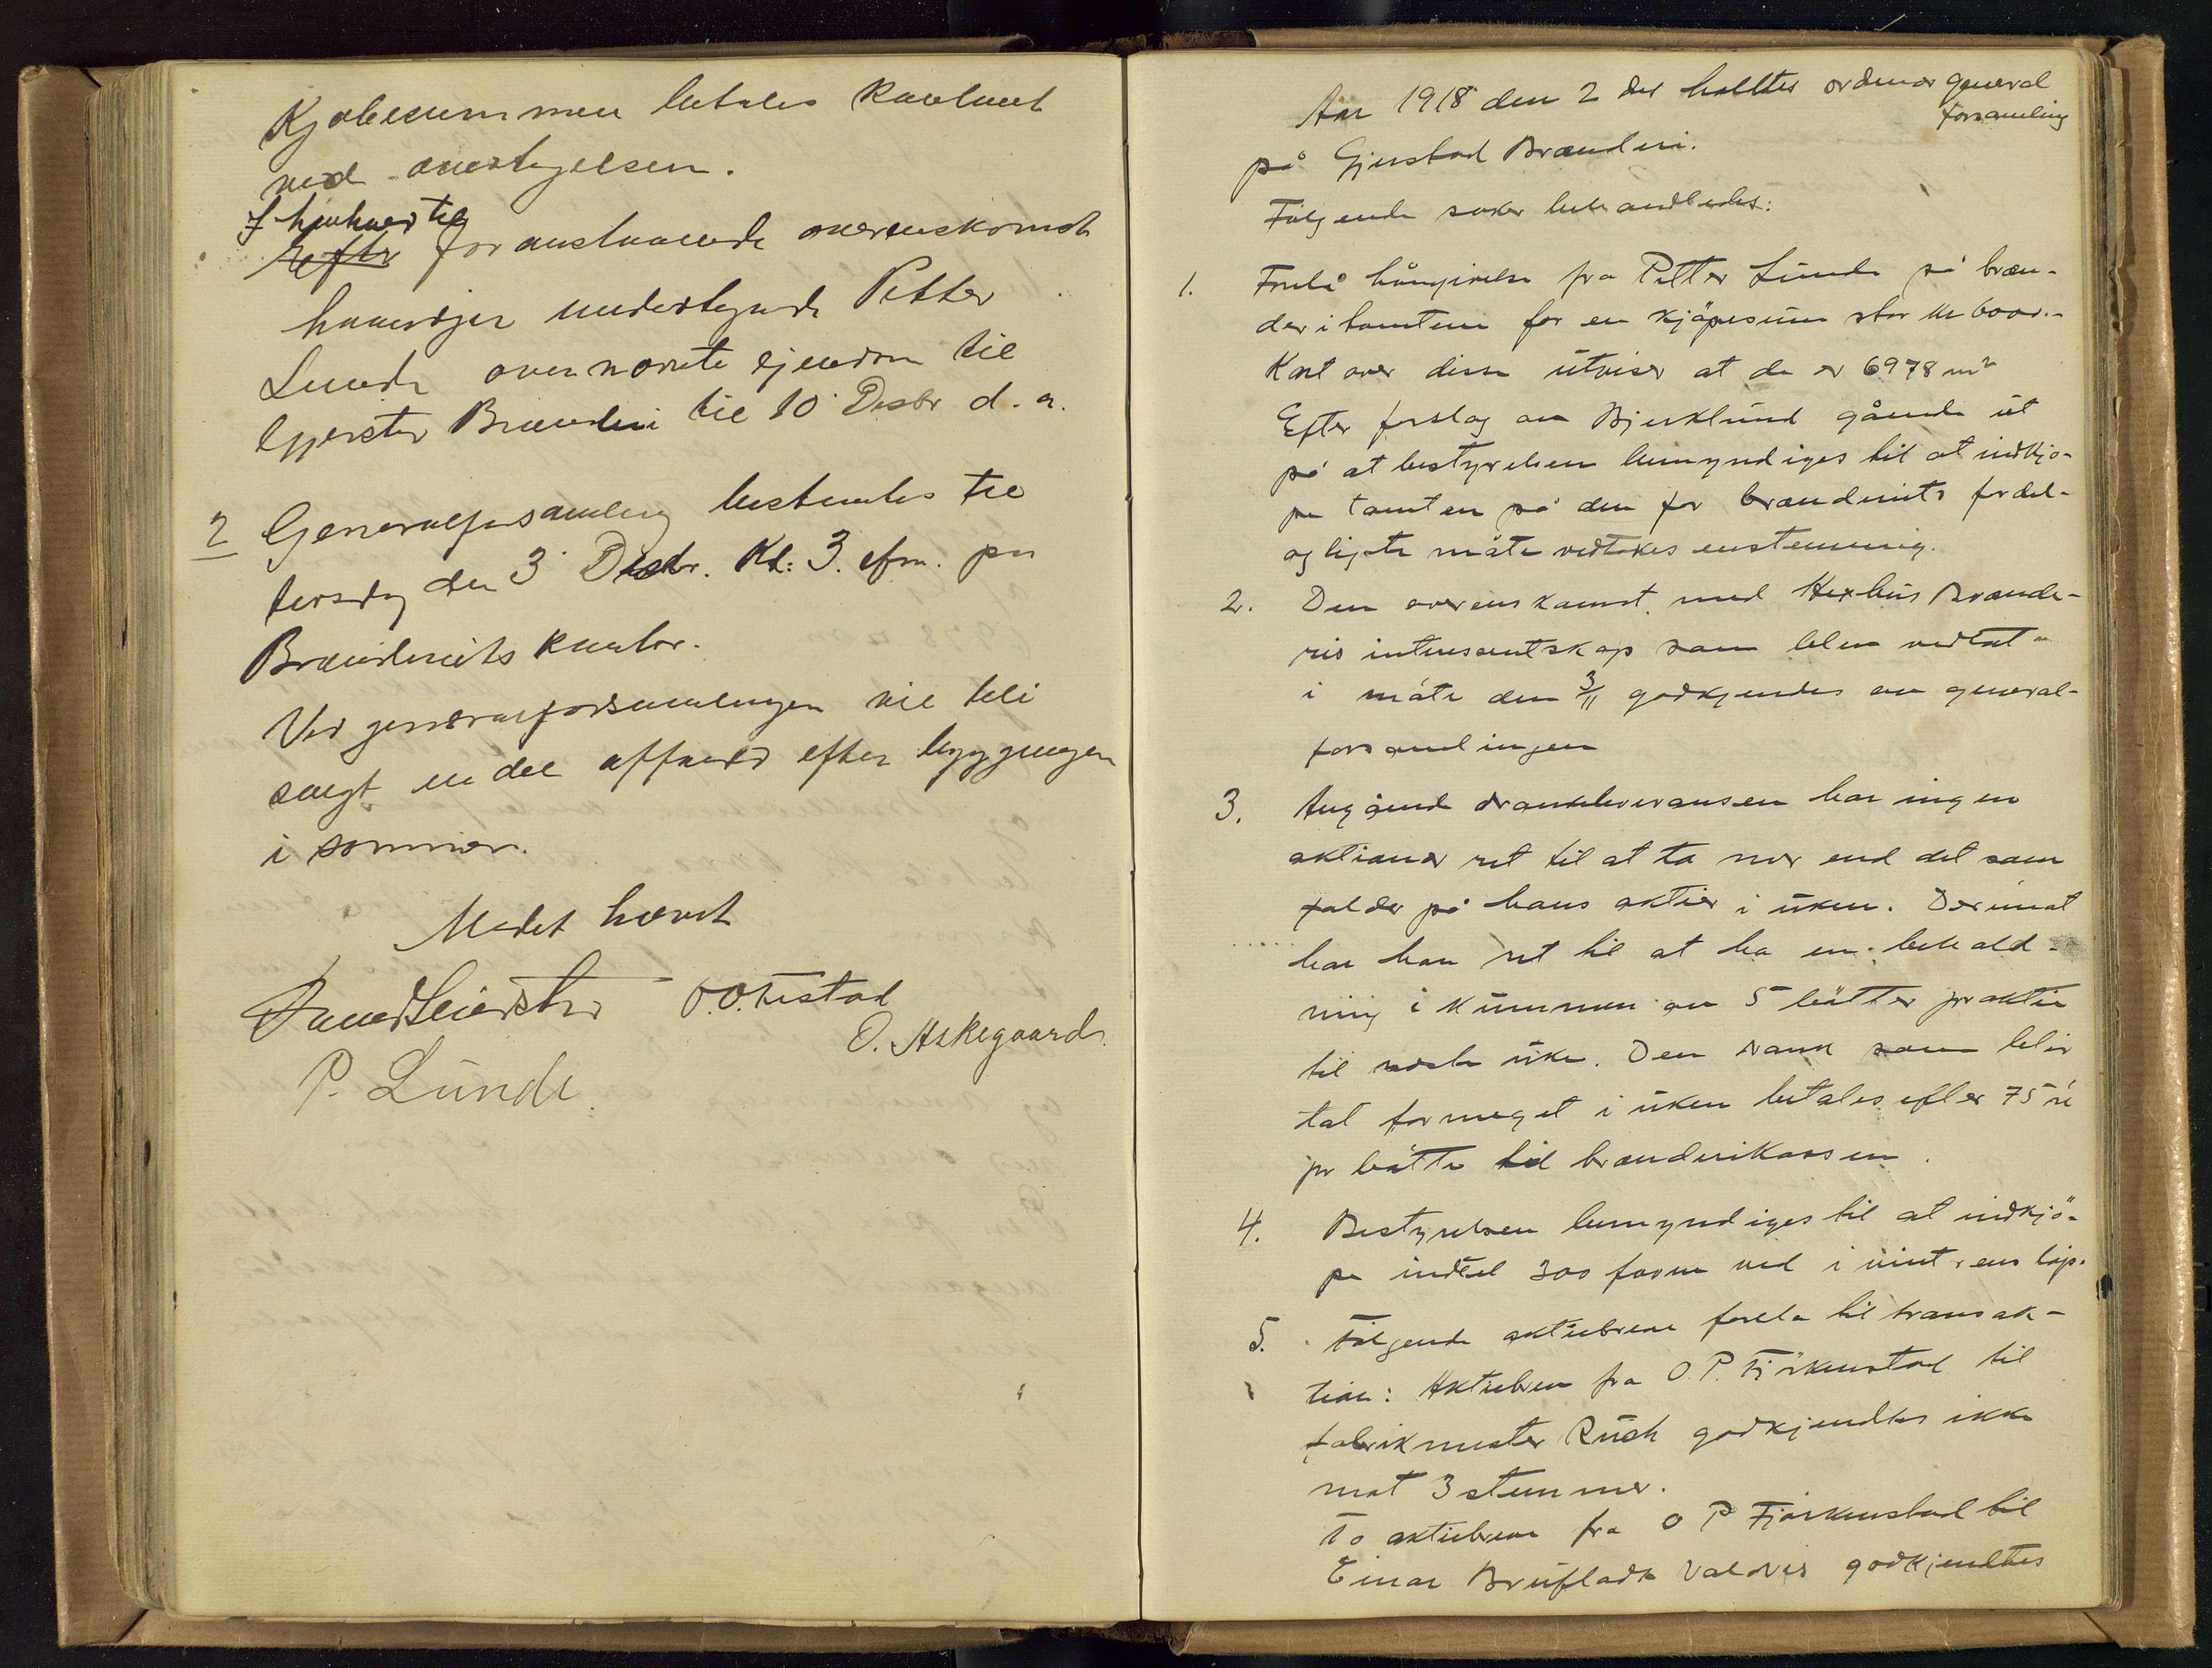 Kjøbesummen betales kontant
ved overtagelsen.
I henhold til
Efter foranstaaende overenskomst
haandgir undertegnede Petter
Lunde ovennævnte ejendom til
Gjerstad Brænderi til 10 Desbr d. a.
2 Generalforsamling bestemtes til
tirsdag den 3 Desbr. Kl: 3. efm. paa
Brænderiets kontor.
Ved generalforsamlingen vil bli
solgt en del affald efter bygningen
i sommer.
Mødet hævet
O. O. Tistad
O. Askegaard
P. Lunde
Aar 1918 den 2 des holdtes ordinær general
forsamling
på Gjerstad Brænderi.
Følgende saker behandledes:
1. Forelå hångivelse fra Petter Lunde på bræn-
deritomten for en kjøpesum stor kr 6000.-
Kart over disse utviser at de er 6978 m²
Efter forslag av Bjerklund gående ut
på at bestyrelsen bemyndiges til at indkjø-
pe tomten på den for brænderiets fordel-
agligste måte vedtokes enstemmig.
2. Den overenskomst med Brænde-
ris interesentskap som blev vedtat
i møte den 3/11 godkjendes av general-
forsamlingen
3. Angående drankleveransen har ingen
aktionær ret til at ta mer end det som
falder på hans aktier i uken. Derimot
har han ret til at ha en behold-
ning i kummen av 5 bøtter pr aktie
til næste uke. Den drank som blir
tat formeget i uken betales efter 75 øre
pr bøtte til brænderikassen.
4. Bestyrelsen bemyndiges til at indkjø-
pe indtil 300 favne ved i vinterens løp.
5. Følgende aktiebreve forela til transak-
tion: Aktiebrev fra O. P. Fjørkenstad til
fabrikmester godkjendtes ikke
mot 3 stemmer.
To aktiebreve fra O P Fjørkenstad til
Einar Brufladt Valdres godkjendtes